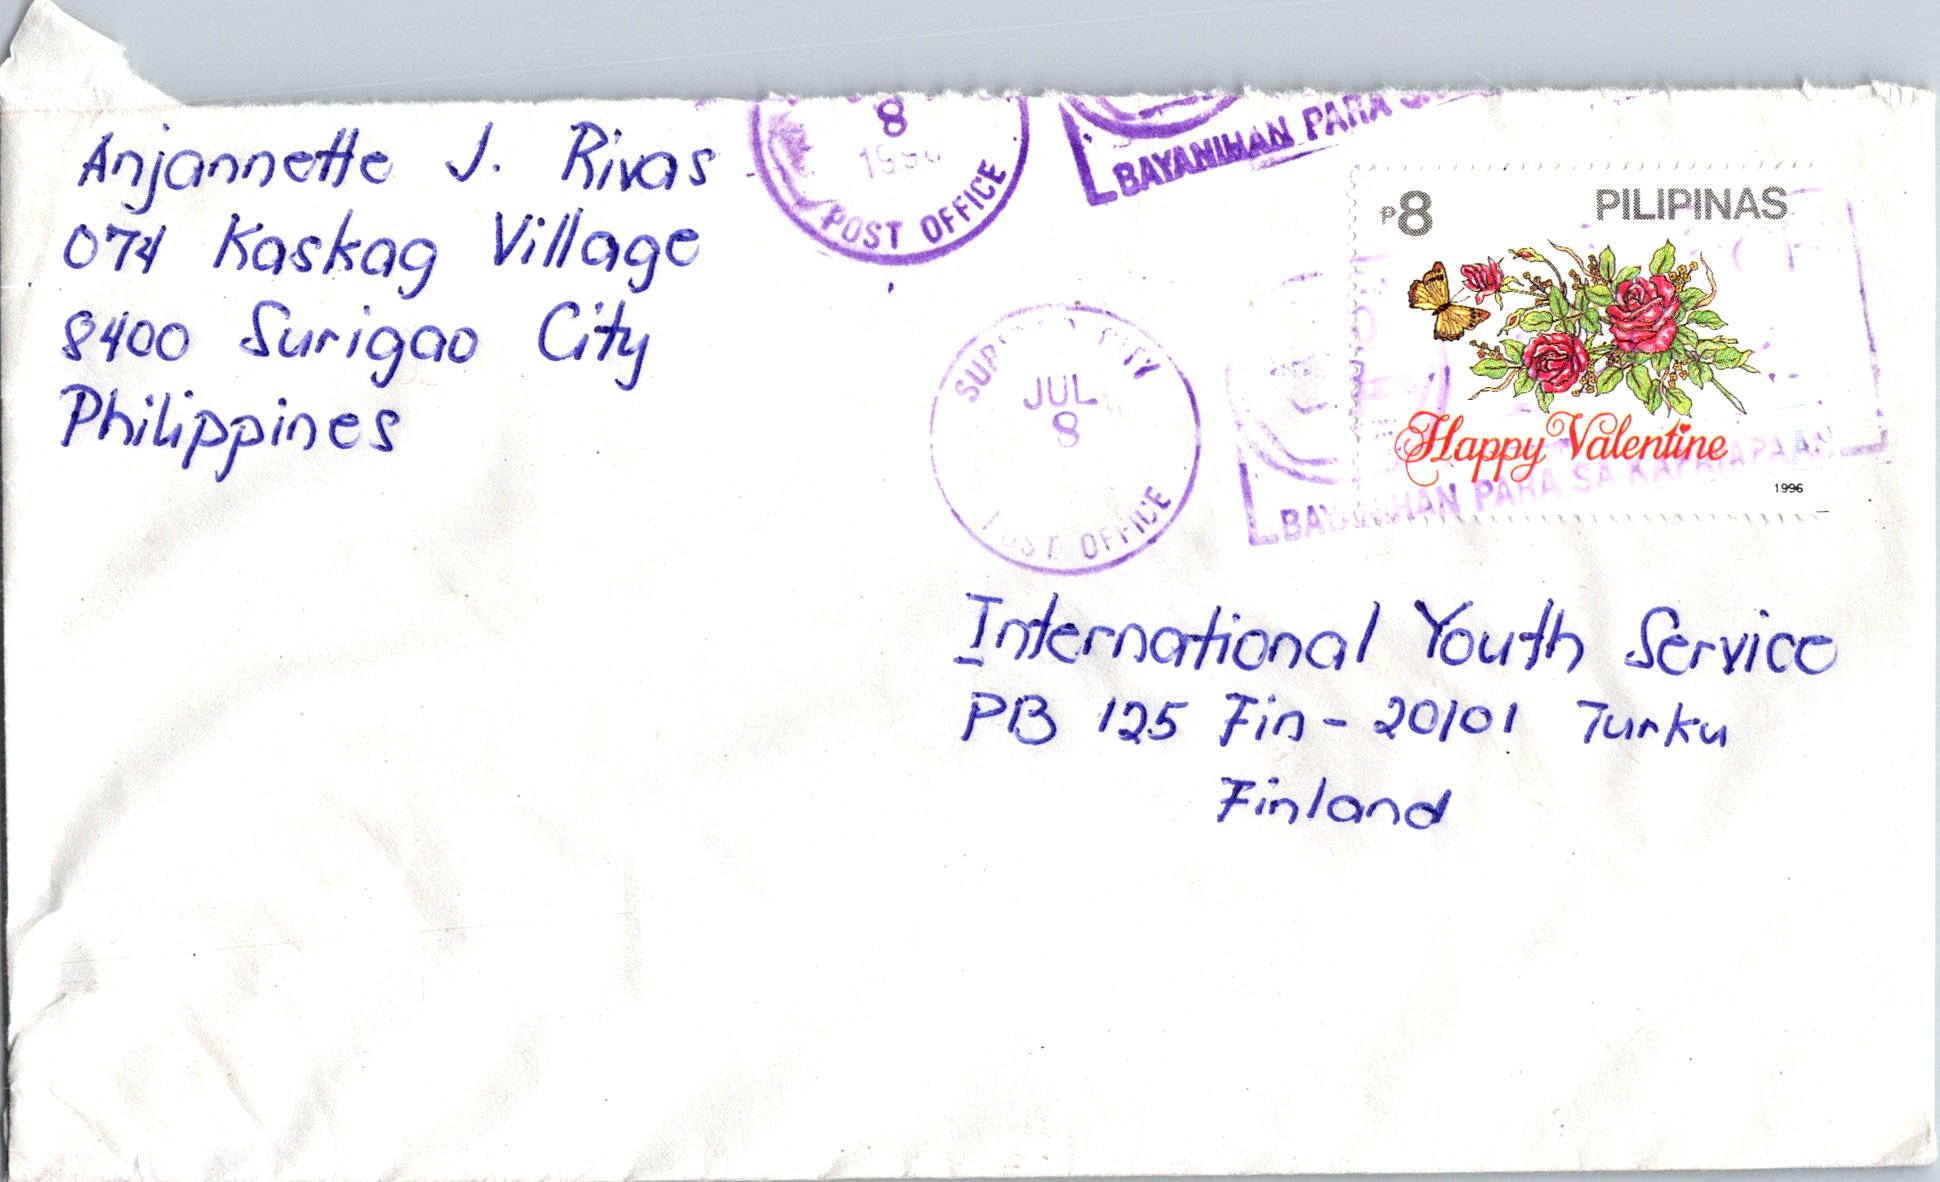 Anjannette J. Rivas
074 Kaskag Village
8400 Surigao City
Philippines
8
POST OFFICE
BAYANIHAN PARA
₱8
PILIPINAS
Happy Valentine
1996
JUL
8
POST OFFICE
BAYANIHAN PARA SA KAPAYAPAAN
International Youth Service
PB 125 Fin - 20101 Turku
Finland